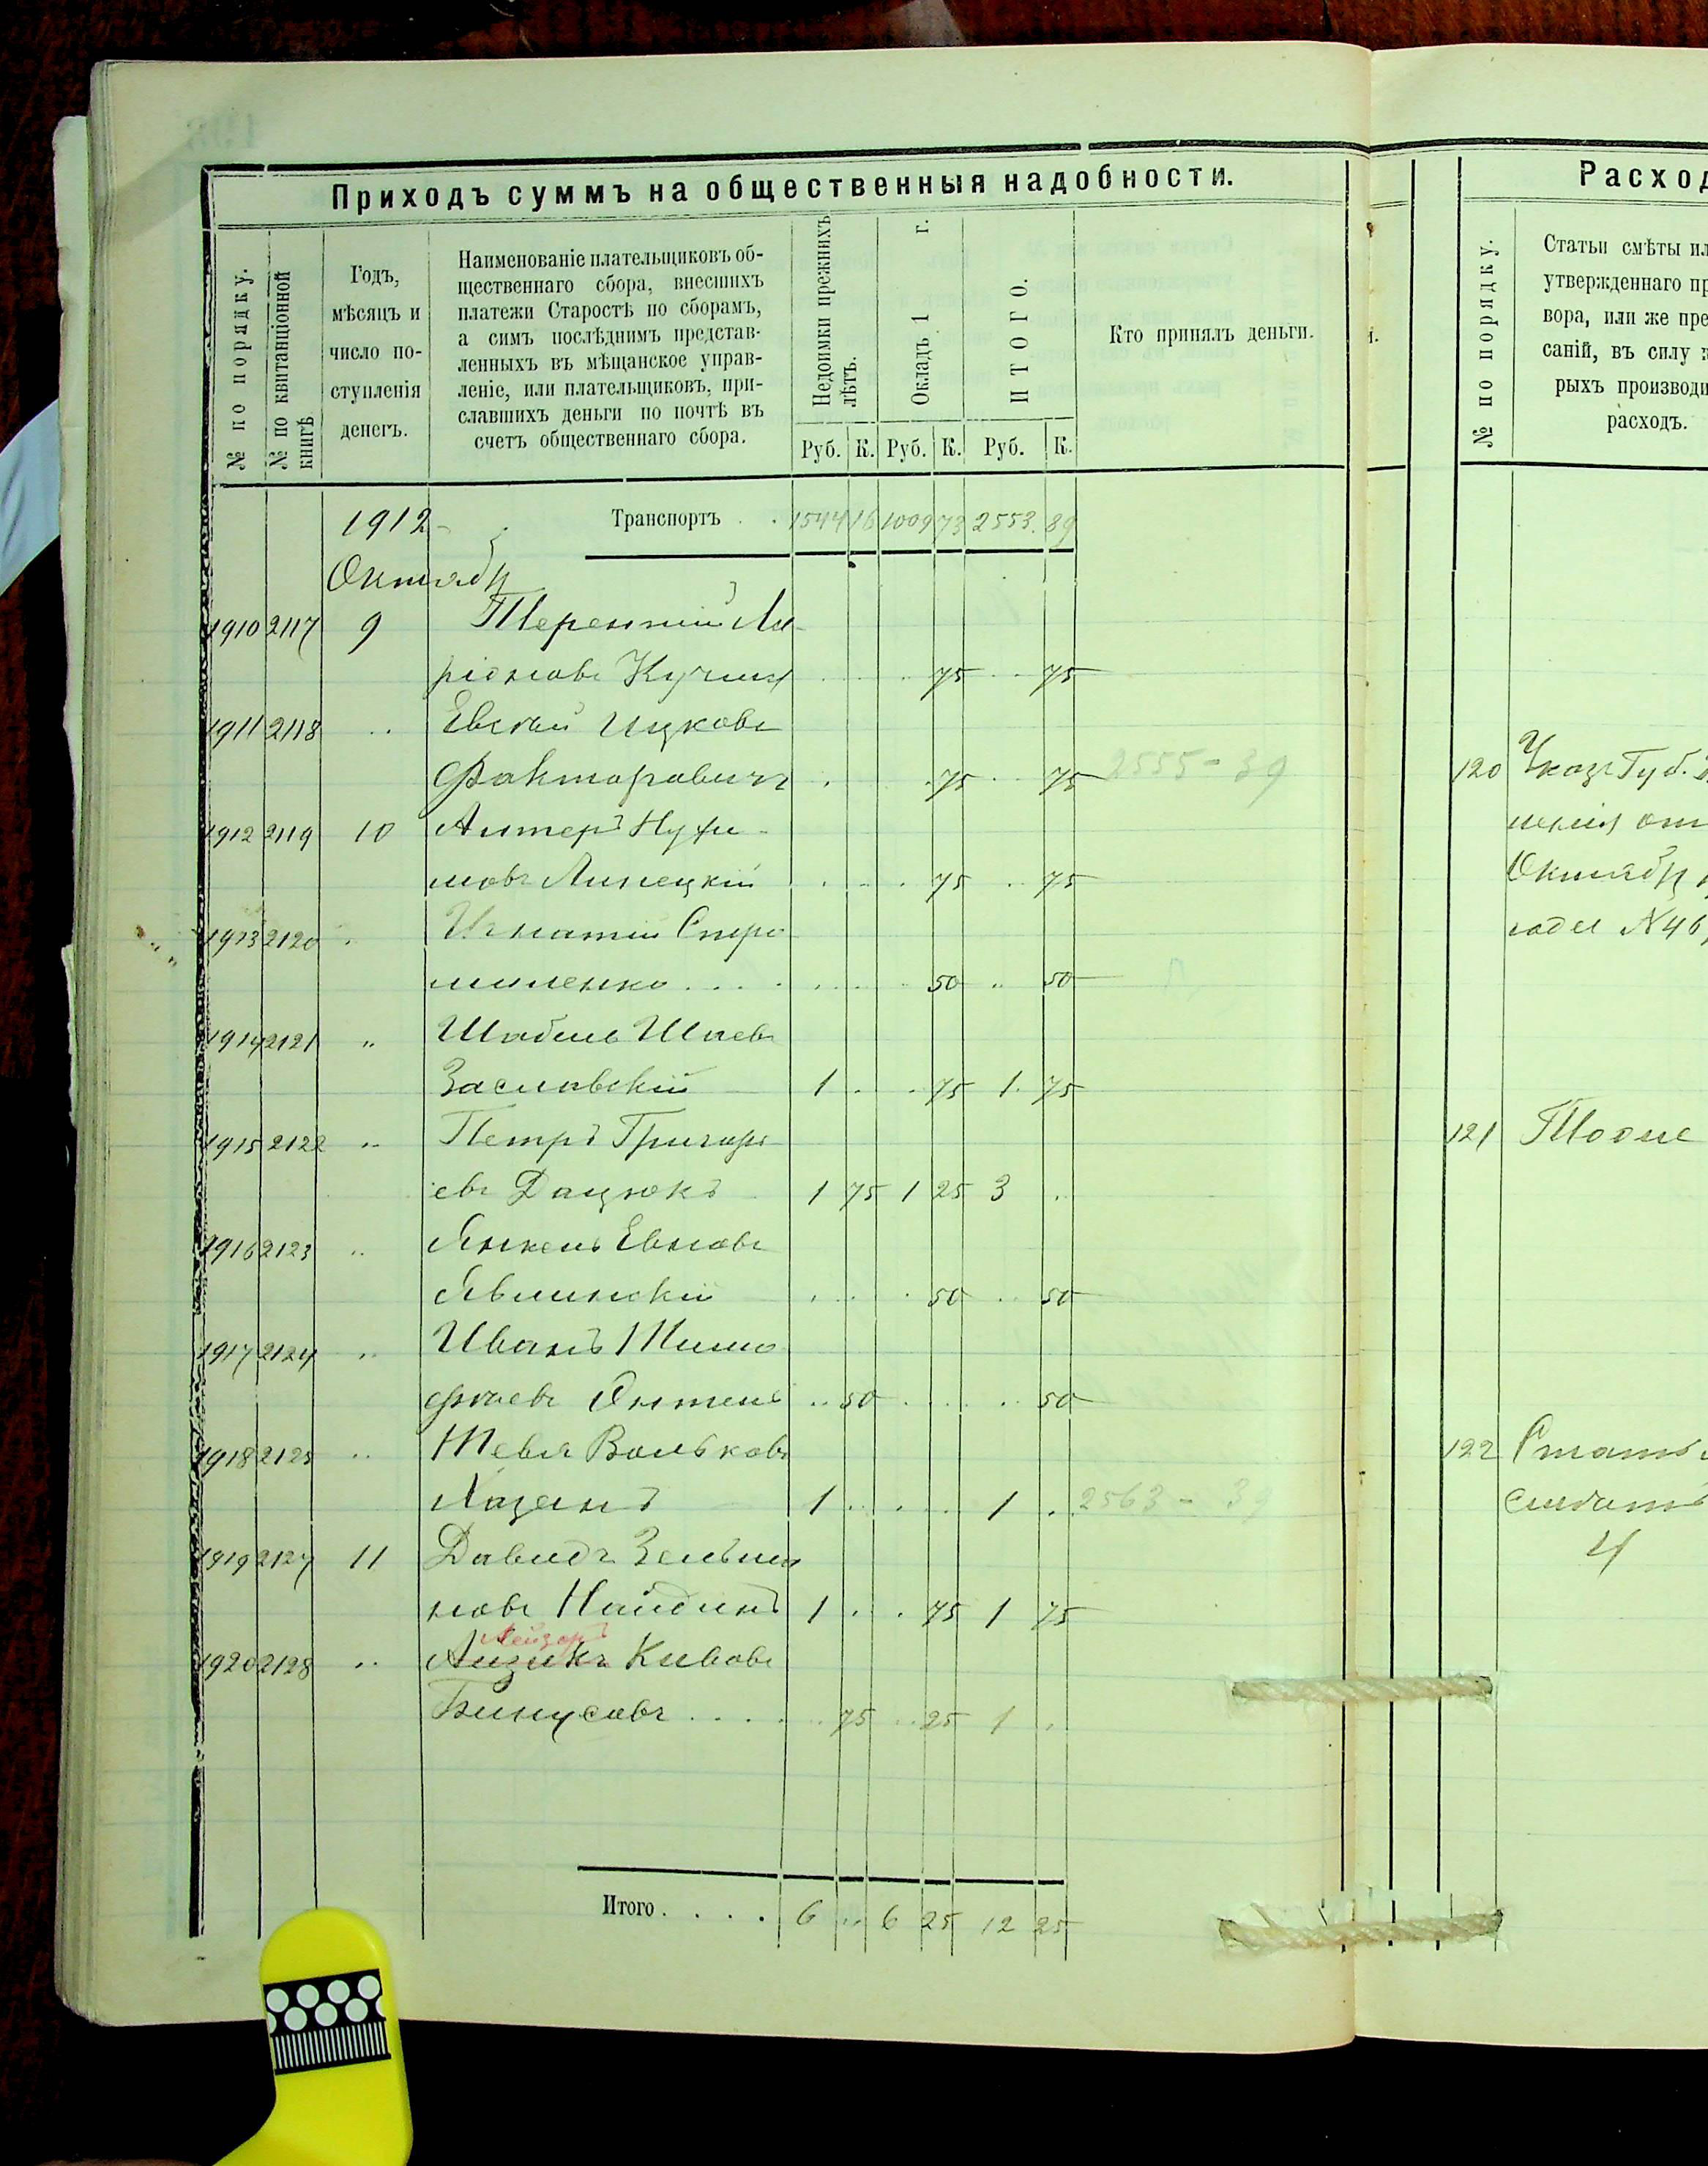 Приходъ суммъ на общественныя надобности.
№ по порядку.
№ по квитанціонной книгѣ
Годъ,
мѣсяцъ и
число по-
ступленія
денегъ.
Наименованіе плательщиковъ об-
щественнаго сбора, внесшихъ
платежи Старостѣ по сборамъ,
а симъ послѣднимъ представ-
ленныхъ въ мѣщанское управ-
леніе, или плательщиковъ, при-
славшихъ деньги по почтѣ въ
счетъ общественнаго сбора.
Недоимки прежнихъ лѣтъ.
Окладъ 1 г.
ИТОГО.
Кто принялъ деньги.
Руб. К. Руб. К. Руб. К.
1912 Транспортъ 1544 16 1009 73 2553 89
Октябр
1910 2117 9 Терентій Ла-
ріоновъ Кучин 75 75
1911 2118 " Евсѣй Ицковъ
Факторовичъ 75 75 2555-39
1912 2119 10 Антеръ Нухи-
мовъ Липецкій 75 75
1913 2120 " Игнатій Стро
миленко 50 50
1914 2121 " Шабель Шаевъ
Заславскій 1 75 1 75
1915 2122 " Петръ Григорь
евъ Дацюкъ 1 75 1 25 3
1916 2123 " Янкель Евновъ
Явлинскій 50 50
1917 2124 " Иванъ Тимо
фѣевъ 50 50
1918 2125 " Тевля Вольковъ
Хазанъ 1 1 2563-39
1919 2127 11 Давидъ Зельма
новъ Найдинъ 1 75 1 75
Лейзоръ
1920 2128 " Айзикъ Кивовъ
Бинусовъ 75 25 1
Итого 6 " 6 25 12 25
Расход
№ по порядку.
Статьи смѣты ил
утвержденнаго пр
вора, или же пре
саній, въ силу
рыхъ производи
расходъ.
120 Указъ Губ.
ленія от
Октября
года №46
121 Тоже
122 Статья
смѣты
4